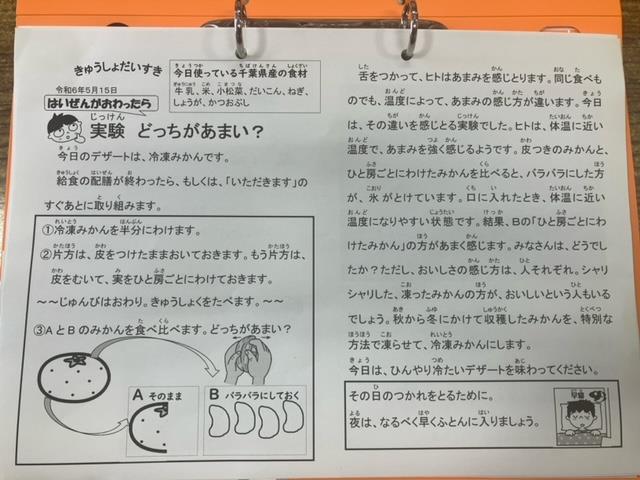 きゅうしょだいすき
令和6年5月15日
今日使っている千葉県産の食材
牛乳、米、小松菜、だいこん、ねぎ、
しょうが、かつおぶし
はいぜんがおわったら
実験 どっちがあまい？
今日のデザートは、冷凍みかんです。
給食の配膳が終わったら、もしくは、「いただきます」の
すぐあとに取り組みます。
①冷凍みかんを半分にわけます。
②片方は、皮をつけたままおいておきます。もう片方は、
皮をむいて、実をひと房ごとにわけておきます。
～～じゅんびはおわり。きゅうしょくをたべます。～～
③AとBのみかんを食べ比べます。どっちがあまい？
A そのまま
B バラバラにしておく
舌をつかって、ヒトはあまみを感じとります。同じ食べも
のでも、温度によって、あまみの感じ方が違います。今日
は、その違いを感じとる実験でした。ヒトは、体温に近い
温度で、あまみを強く感じるようです。皮つきのみかんと、
ひと房ごとにわけたみかんを比べると、バラバラにした方
が、氷がとけています。口に入れたとき、体温に近い
温度になりやすい状態です。結果、Bの「ひと房ごとにわ
けたみかん」の方があまく感じます。みなさんは、どうでし
たか？ただし、おいしさの感じ方は、人それぞれ。シャリ
シャリした、凍ったみかんの方が、おいしいという人もいる
でしょう。秋から冬にかけて収穫したみかんを、特別な
方法で凍らせて、冷凍みかんにします。
今日は、ひんやり冷たいデザートを味わってください。
その日のつかれをとるために。
夜は、なるべく早くふとんに入りましょう。
早寝